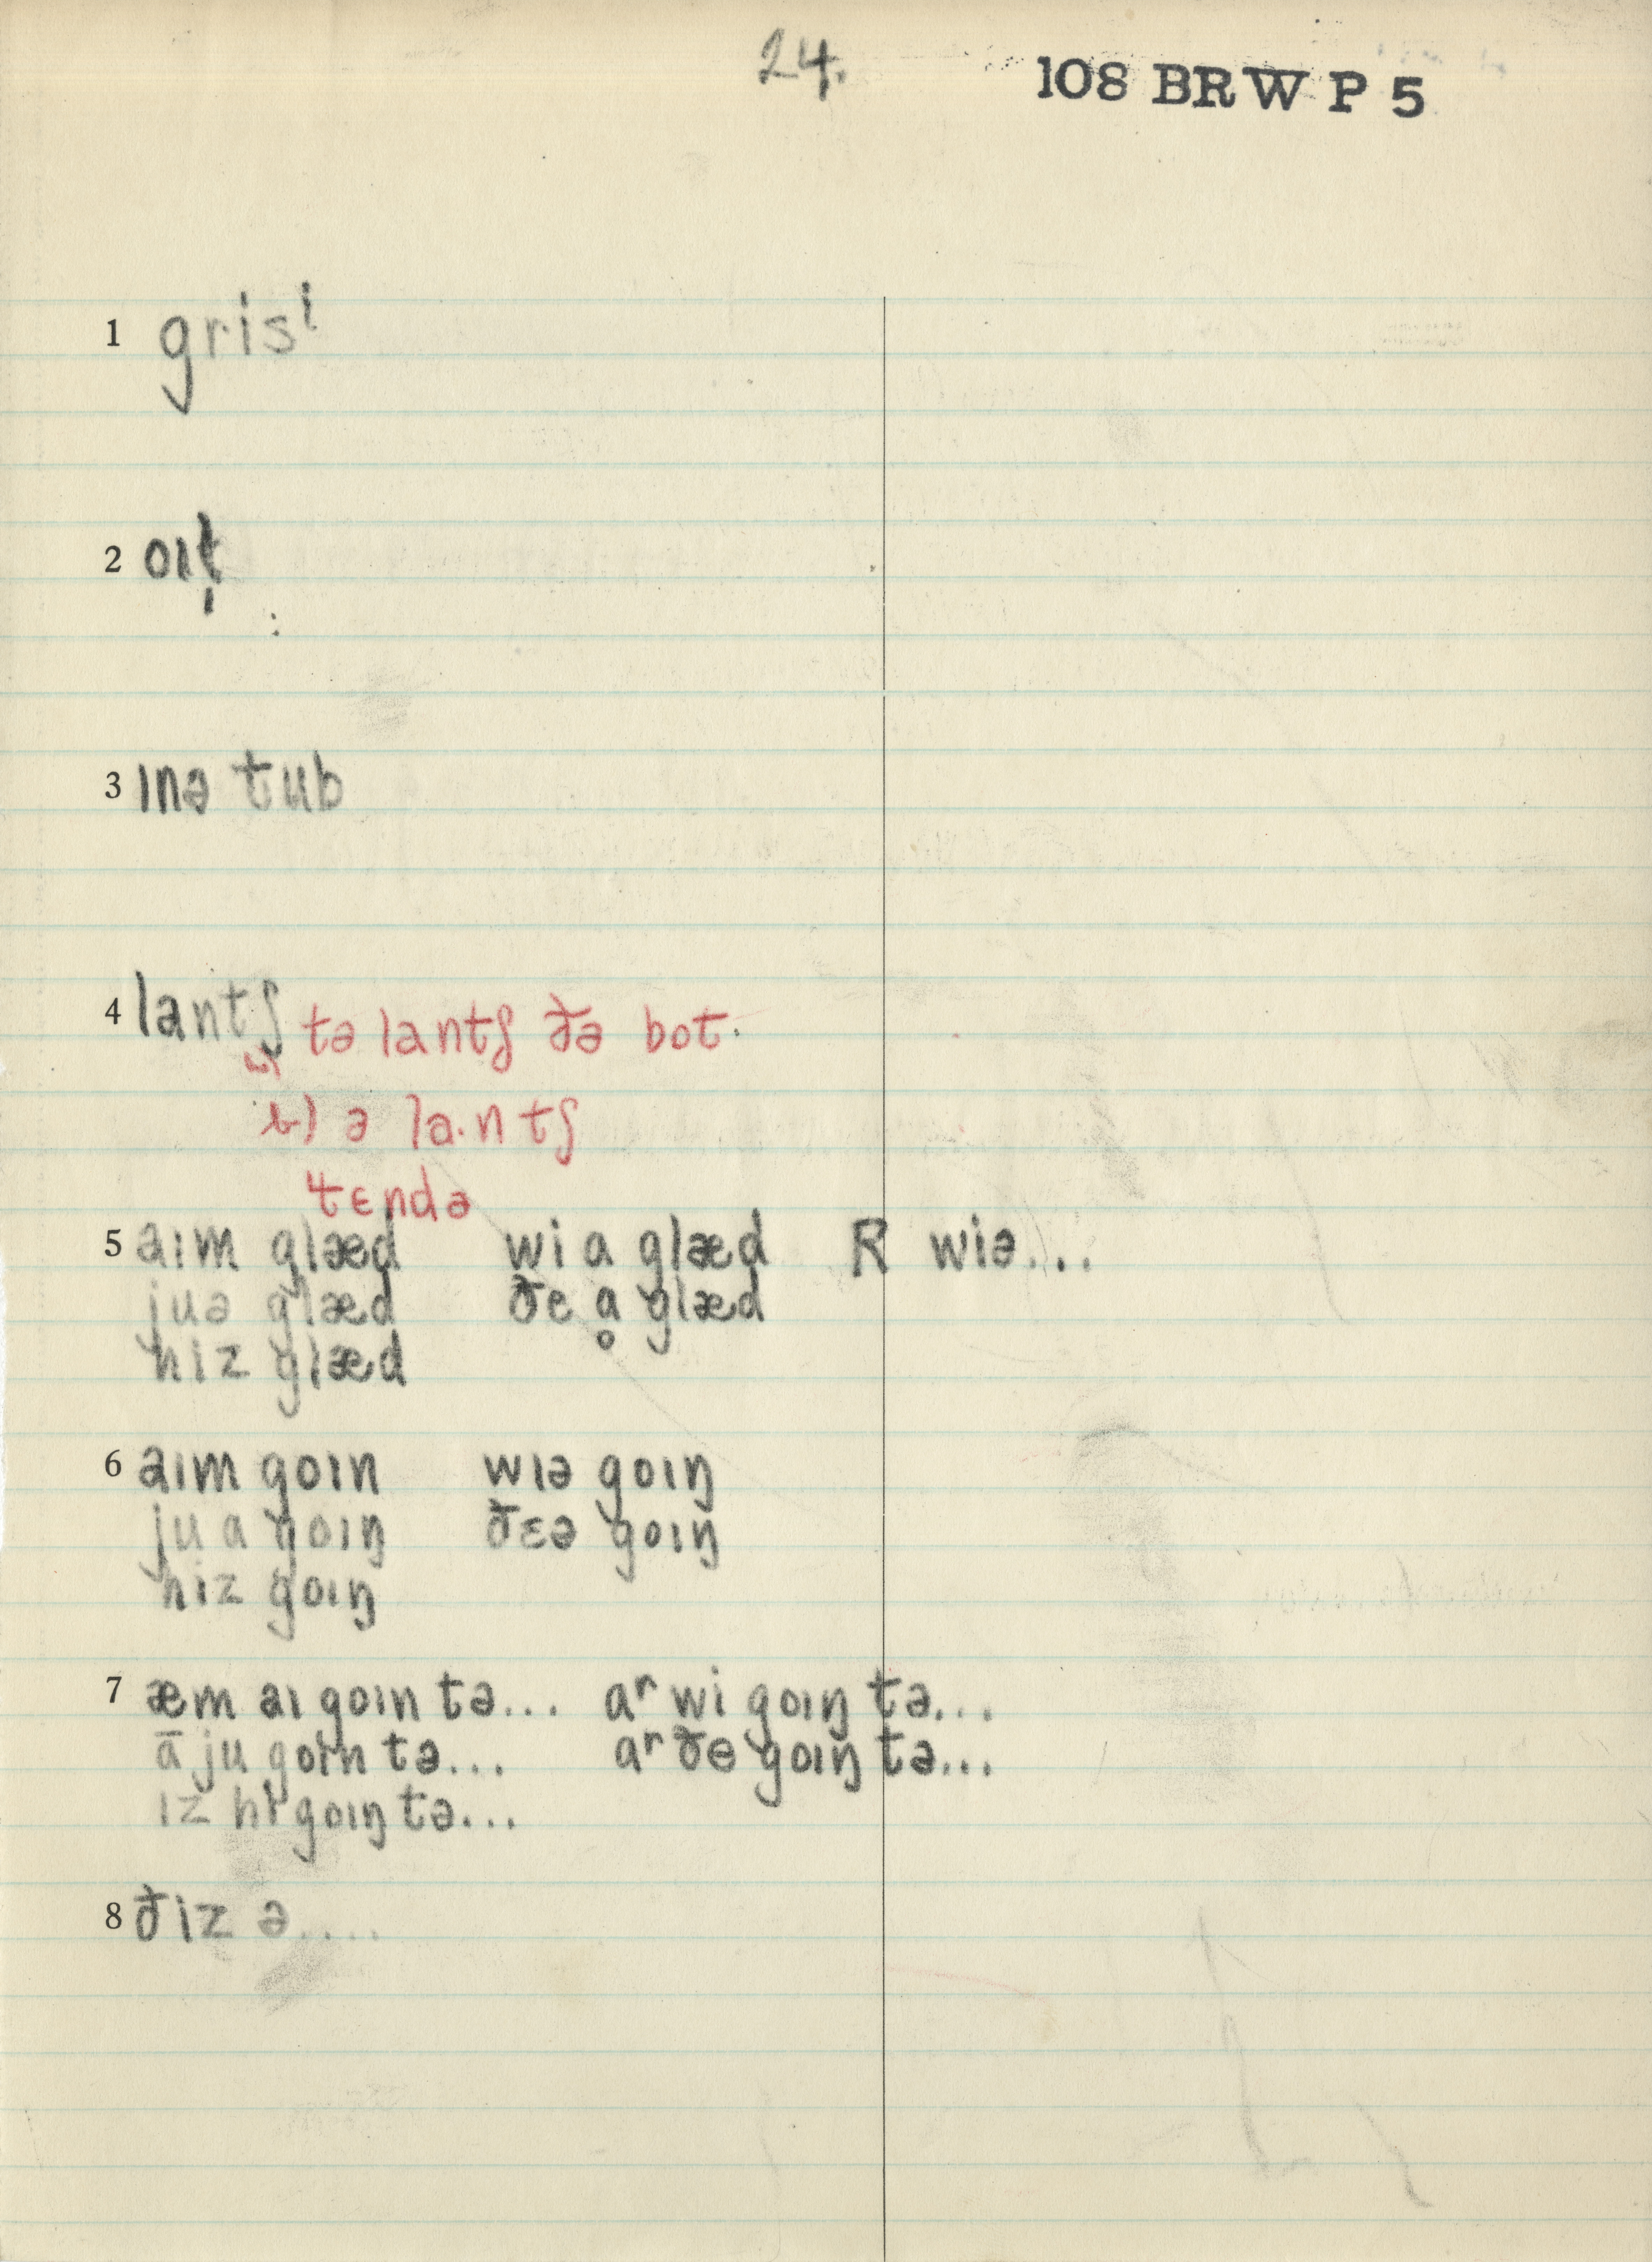 24.
108 BRW P 5
1 grisⁱ
2 oɪt̩
3 ɪnə tub
4 lantʃ
a) tə lantʃ ðə bot.
b) ə la·ntʃ
tɛndə
5 aɪm glæd wi ɑ glæd R wiə...
juə glæd ðe ɑ̥ glæd
hiz glæd
6 aɪm goɪn wɪə goɪŋ
ju a goɪŋ ðɛə goɪŋ
hiz goɪŋ
7 æm aɪ goɪn tə... aʳ wi goɪŋ tə...
ā ju goɪn tə... aʳ ðe goɪŋ tə...
ɪz hi goɪŋ tə...
8 ðɪz ə....